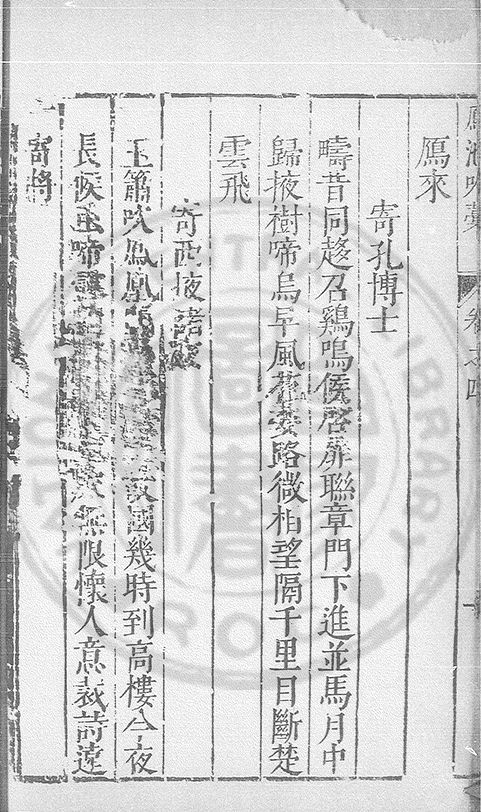 鳳池吟藁 卷之四
鴈來
寄孔博士
疇昔同趍召鷄鳴候啓扉聯章門下進並馬月中
歸掖樹啼烏早風花委路微相望隔千里目斷楚
雲飛
寄西掖諸友
玉簫吹鳳凰 故國幾時到高樓今夜
長疾 啼 無限懷人意裁詩遠
寄將